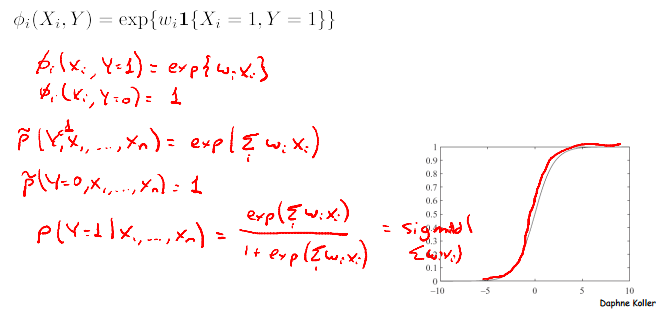 ϕᵢ(Xᵢ, Y) = exp{wᵢ1{Xᵢ = 1, Y = 1}}
ϕᵢ(xᵢ, Y=1) = exp{wᵢxᵢ}
ϕᵢ(xᵢ, Y=0) = 1
p̃(Y=1, x₁, ..., xₙ) = exp(∑ᵢ wᵢxᵢ)
p̃(Y=0, x₁, ..., xₙ) = 1
p(Y=1|x₁, ..., xₙ) = exp(∑ᵢ wᵢxᵢ) / 1 + exp(∑ᵢ wᵢxᵢ) = sigmoid(
∑wᵢxᵢ)
1
0.9
0.8
0.7
0.6
0.5
0.4
0.3
0.2
0.1
0
−10 −5 0 5 10
Daphne Koller